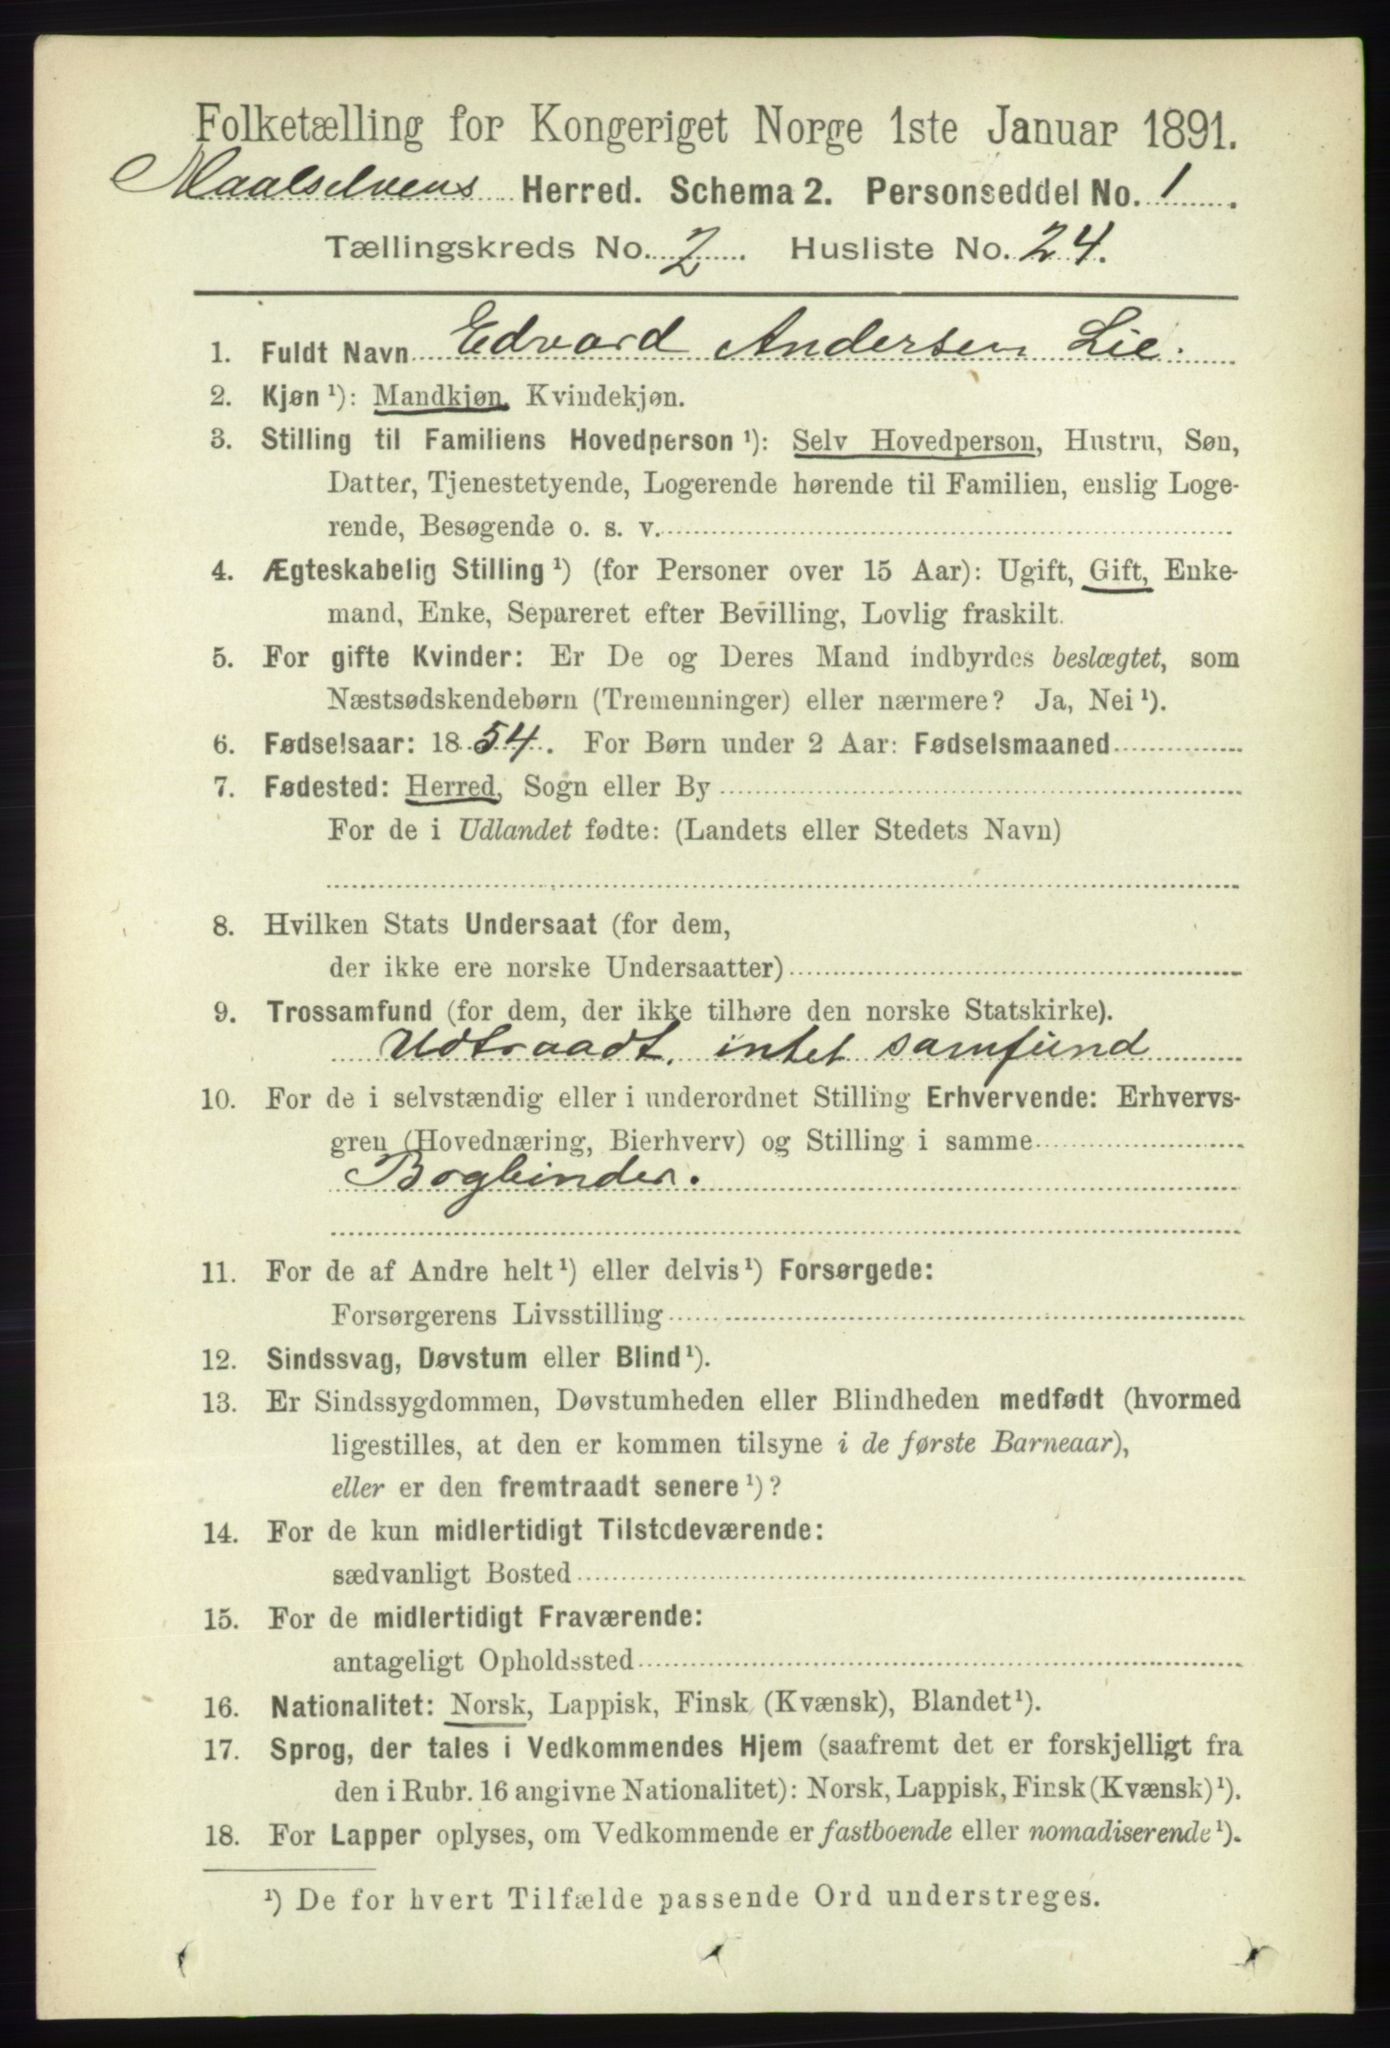 Folketælling for Kongeriget Norge 1ste Januar 1891.
Maalselvens Herred. Schema 2. Personseddel No. 1.
Tællingskreds No. 2. Husliste No. 24.
1. Fuldt Navn Edvard Andersen Lie.
2. Kjøn ¹): Mandkjøn, Kvindekjøn.
3. Stilling til Familiens Hovedperson ¹): Selv Hovedperson, Hustru, Søn,
Datter, Tjenestetyende, Logerende hørende til Familien, enslig Loge-
rende, Besøgende o. s. v.
4. Ægteskabelig Stilling ¹) (for Personer over 15 Aar): Ugift, Gift, Enke-
mand, Enke, Separeret efter Bevilling, Lovlig fraskilt.
5. For gifte Kvinder: Er De og Deres Mand indbyrdes beslægtet, som
Næstsødskendebørn (Tremenninger) eller nærmere? Ja, Nei ¹).
6. Fødselsaar: 1854. For Børn under 2 Aar: Fødselsmaaned
7. Fødested: Herred, Sogn eller By
For de i Udlandet fødte: (Landets eller Stedets Navn)
8. Hvilken Stats Undersaat (for dem,
der ikke ere norske Undersaatter)
9. Trossamfund (for dem, der ikke tilhøre den norske Statskirke).
Udtraadt, intet samfund
10. For de i selvstændig eller i underordnet Stilling Erhvervende: Erhvervs-
gren (Hovednæring, Bierhverv) og Stilling i samme
Bogbinder.
11. For de af Andre helt ¹) eller delvis ¹) Forsørgede:
Forsørgerens Livsstilling
12. Sindssvag, Døvstum eller Blind ¹).
13. Er Sindssygdommen, Døvstumheden eller Blindheden medfødt (hvormed
ligestilles, at den er kommen tilsyne i de første Barneaar),
eller er den fremtraadt senere ¹)?
14. For de kun midlertidigt Tilstedeværende:
sædvanligt Bosted
15. For de midlertidigt Fraværende:
antageligt Opholdssted
16. Nationalitet: Norsk, Lappisk, Finsk (Kvænsk), Blandet ¹).
17. Sprog, der tales i Vedkommendes Hjem (saafremt det er forskjelligt fra
den i Rubr. 16 angivne Nationalitet): Norsk, Lappisk, Finsk (Kvænsk) ¹).
18. For Lapper oplyses, om Vedkommende er fastboende eller nomadiserende ¹).
¹) De for hvert Tilfælde passende Ord understreges.